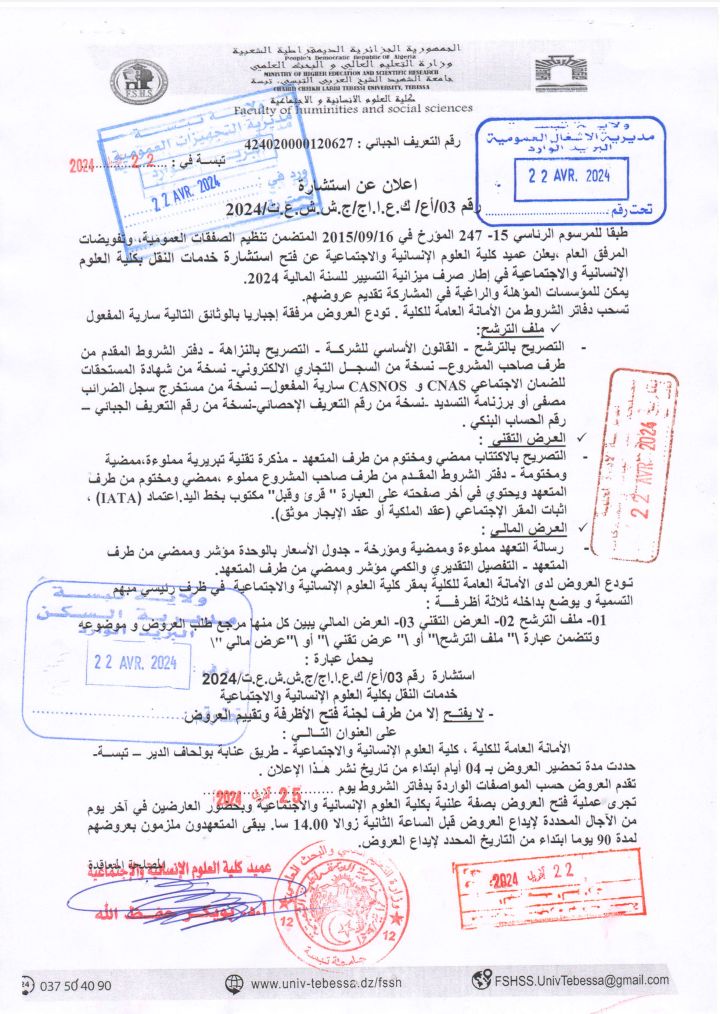 الجمهورية الجزائرية الديمقراطية الشعبية
People's Democratic Republic of Algeria
وزارة التعليم العالي و البحث العلمي
MINISTRY OF HIGHER EDUCATION AND SCIENTIFIC RESEARCH
جامعة الشهيد الشيخ العربي التبسي، تبسة
CHAHID CHEIKH LARBI TEBESSI UNIVERSITY, TEBESSA
كلية العلوم الانسانية و الاجتماعية
Faculty of huminities and social sciences
FSHS
ولاية تبسة
مديرية التجهيزات العمومية
البريد الوارد
22 AVR. 2024
ولاية تبسة
مديرية الأشغال العمومية
البريد الوارد
22 AVR. 2024
تحت رقم
رقم التعريف الجبائي : 424020000120627
تبسة في : 22 2024
اعلان عن استشارة
رقم 03/أع/ ك.ع.ا.اج/ج.ش.ش.ع.ت/2024
طبقا للمرسوم الرئاسي 15- 247 المؤرخ في 2015/09/16 المتضمن تنظيم الصفقات العمومية، وتفويضات
المرفق العام ،يعلن عميد كلية العلوم الإنسانية والاجتماعية عن فتح استشارة خدمات النقل بكلية العلوم
الإنسانية والاجتماعية في إطار صرف ميزانية التسيير للسنة المالية 2024.
يمكن للمؤسسات المؤهلة والراغبة في المشاركة تقديم عروضهم.
تسحب دفاتر الشروط من الأمانة العامة للكلية . تودع العروض مرفقة إجباريا بالوثائق التالية سارية المفعول
✓ ملف الترشح:
- التصريح بالترشح - القانون الأساسي للشركة - التصريح بالنزاهة - دفتر الشروط المقدم من
طرف صاحب المشروع– نسخة من السجل التجاري الالكتروني- نسخة من شهادة المستحقات
للضمان الاجتماعي CNAS و CASNOS سارية المفعول– نسخة من مستخرج سجل الضرائب
مصفى أو برزنامة التسديد -نسخة من رقم التعريف الإحصائي-نسخة من رقم التعريف الجبائي –
رقم الحساب البنكي .
✓ العرض التقني :
- التصريح بالاكتتاب ممضي ومختوم من طرف المتعهد - مذكرة تقنية تبريرية مملوءة،ممضية
ومختومة - دفتر الشروط المقدم من طرف صاحب المشروع مملوء ،ممضي ومختوم من طرف
المتعهد ويحتوي في أخر صفحته على العبارة " قرئ وقبل" مكتوب بخط اليد.اعتماد (IATA) ،
اثبات المقر الإجتماعي (عقد الملكية أو عقد الإيجار موثق).
22 AVR. 2024
✓ العرض المالي :
- رسالة التعهد مملوءة وممضية ومؤرخة - جدول الأسعار بالوحدة مؤشر وممضي من طرف
المتعهد - التفصيل التقديري والكمي مؤشر وممضي من طرف المتعهد.
تودع العروض لدى الأمانة العامة للكلية بمقر كلية العلوم الإنسانية والاجتماعية في ظرف رئيسي مبهم
التسمية و يوضع بداخله ثلاثة أظرفة :
01- ملف الترشح 02- العرض التقني 03- العرض المالي يبين كل منها مرجع طلب العروض و موضوعه
وتتضمن عبارة \" ملف الترشح\" أو \" عرض تقني \" أو \"عرض مالي "\
ولاية تبسة
مديرية السكن
البريد الوارد
22 AVR. 2024
يحمل عبارة :
استشارة رقم 03/أع/ ك.ع.ا.اج/ج.ش.ش.ع.ت/2024
خدمات النقل بكلية العلوم الإنسانية والاجتماعية
- لا يفتح إلا من طرف لجنة فتح الأظرفة وتقييم العروض
على العنوان التالي :
الأمانة العامة للكلية ، كلية العلوم الإنسانية والاجتماعية - طريق عنابة بولحاف الدير – تبسة-
حددت مدة تحضير العروض بـ 04 أيام ابتداء من تاريخ نشر هذا الإعلان .
تقدم العروض حسب المواصفات الواردة بدفاتر الشروط يوم 25 أفريل 2024
تجرى عملية فتح العروض بصفة علنية بكلية العلوم الإنسانية والاجتماعية وبحضور العارضين في آخر يوم
من الآجال المحددة لإيداع العروض قبل الساعة الثانية زوالا 14.00 سا. يبقى المتعهدون ملزمون بعروضهم
لمدة 90 يوما ابتداء من التاريخ المحدد لإيداع العروض.
المصلحة المتعاقدة
عميد كلية العلوم الإنسانية والاجتماعية
أ.د. بوبكر حفظ الله
وزارة التعليم العالي والبحث العلمي
جامعة تبسة
12
12
22 أفريل 2024
037 50 40 90
www.univ-tebessa.dz/fssh
FSHSS.UnivTebessa@gmail.com